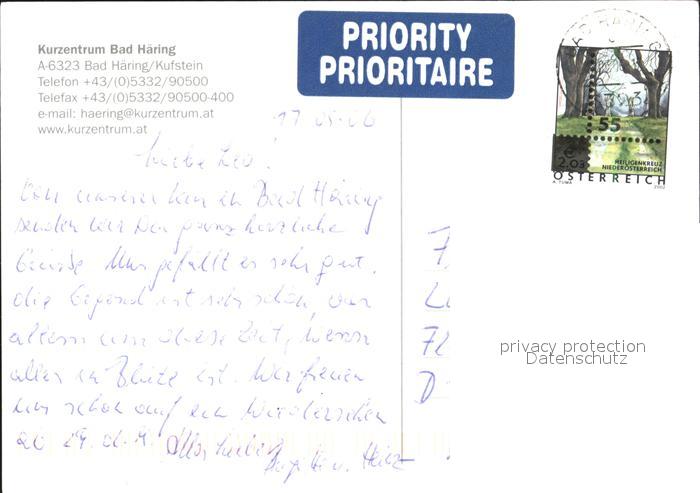 Kurzentrum Bad Häring
A-6323 Bad Häring/Kufstein
Telefon +43/(0)5332/90500
Telefax +43/(0)5332/90500-400
e-mail: haering@kurzentrum.at
www.kurzentrum.at
PRIORITY
PRIORITAIRE
55
2.03
HEILIGENKREUZ
NIEDERÖSTERREICH
ÖSTERREICH
A. TUMA
2002
17 05 06
Liebe Leo!
Von unserer Kur in Bad Häring
senden wir Dir ganz herzliche
Grüsse. Uns gefällt es sehr gut,
die Gegend ist sehr schön, vor
allem um diese Zeit, wenn
alles in Blüte ist. Wir freuen
uns schon auf ein Wiedersehen
Alles Liebe
Brigitte u. Heinz
privacy protection
Datenschutz